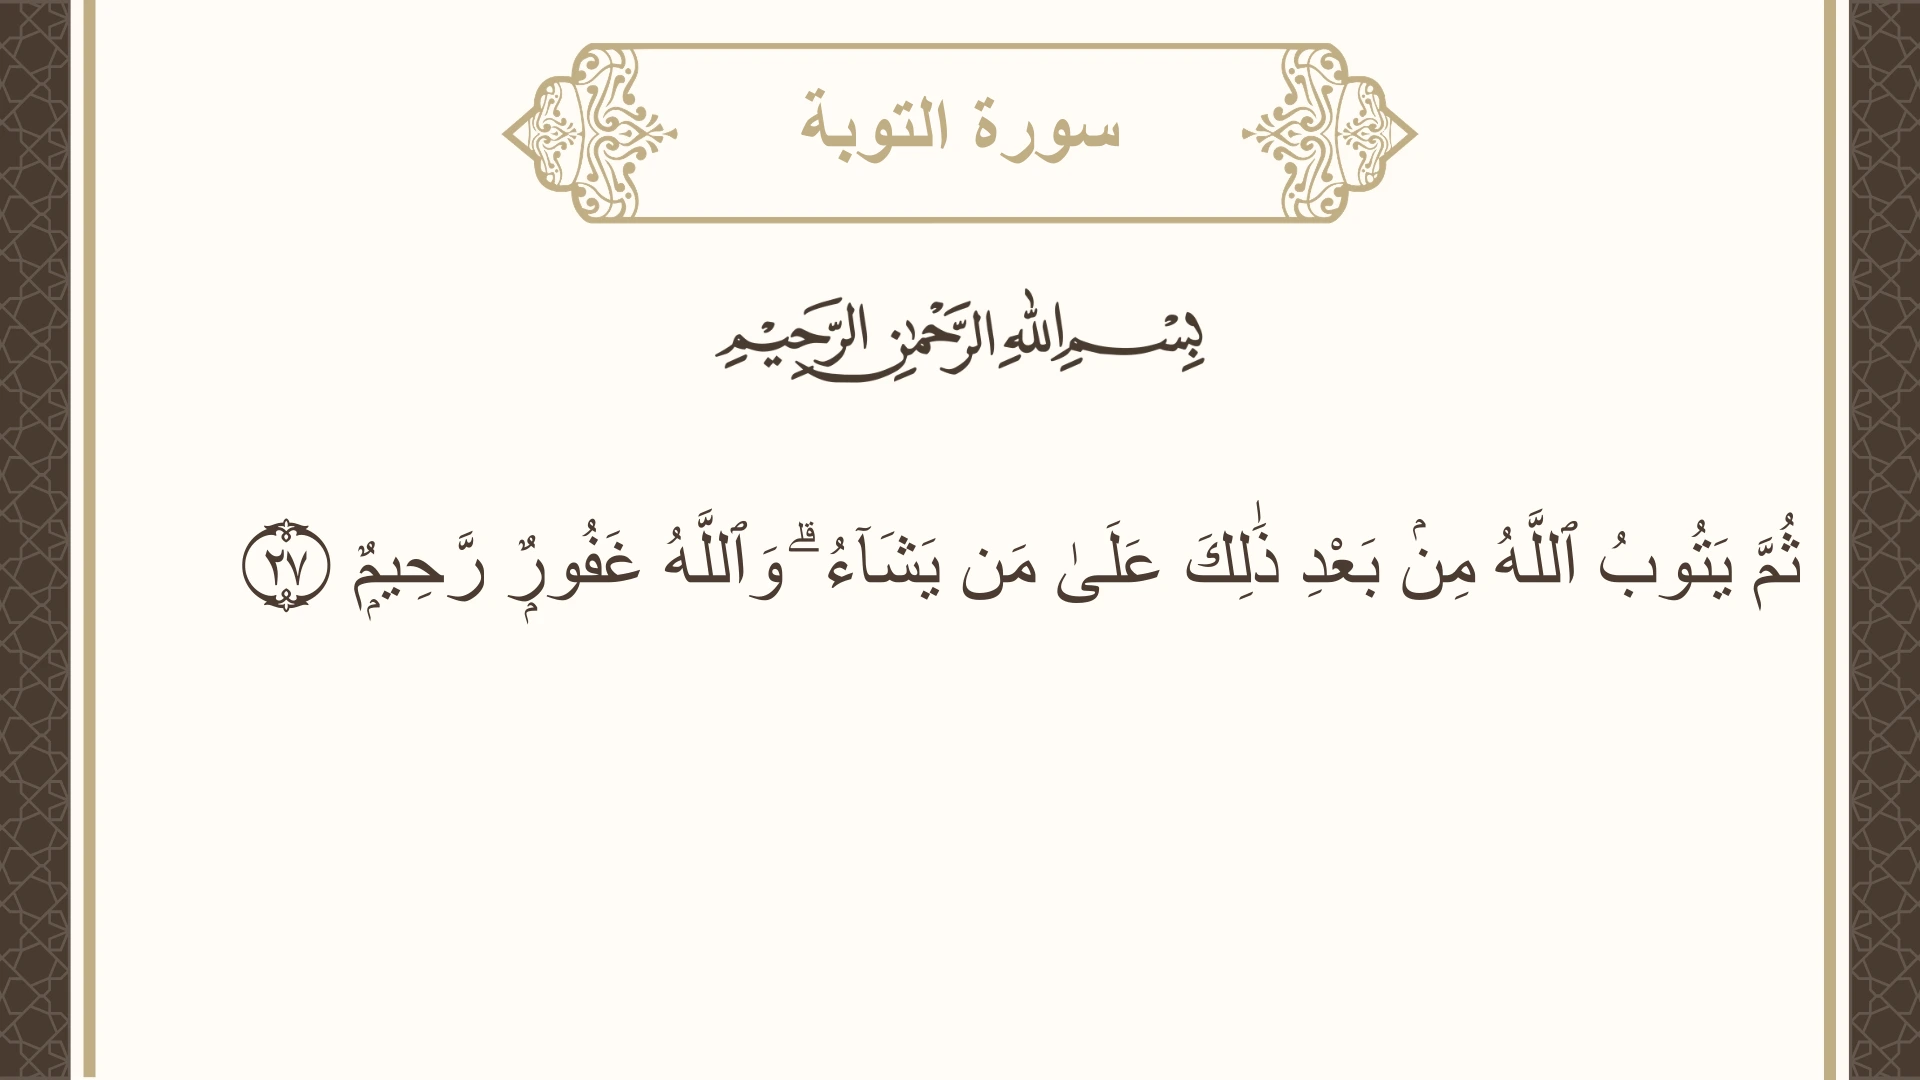 سورة التوبة
بِسْمِ اللهِ الرَّحْمٰنِ الرَّحِيْمِ
ثُمَّ يَتُوبُ ٱللَّهُ مِنۢ بَعْدِ ذَٰلِكَ عَلَىٰ مَن يَشَآءُ ۗ وَٱللَّهُ غَفُورٌۭ رَّحِيمٌۭ ٢٧